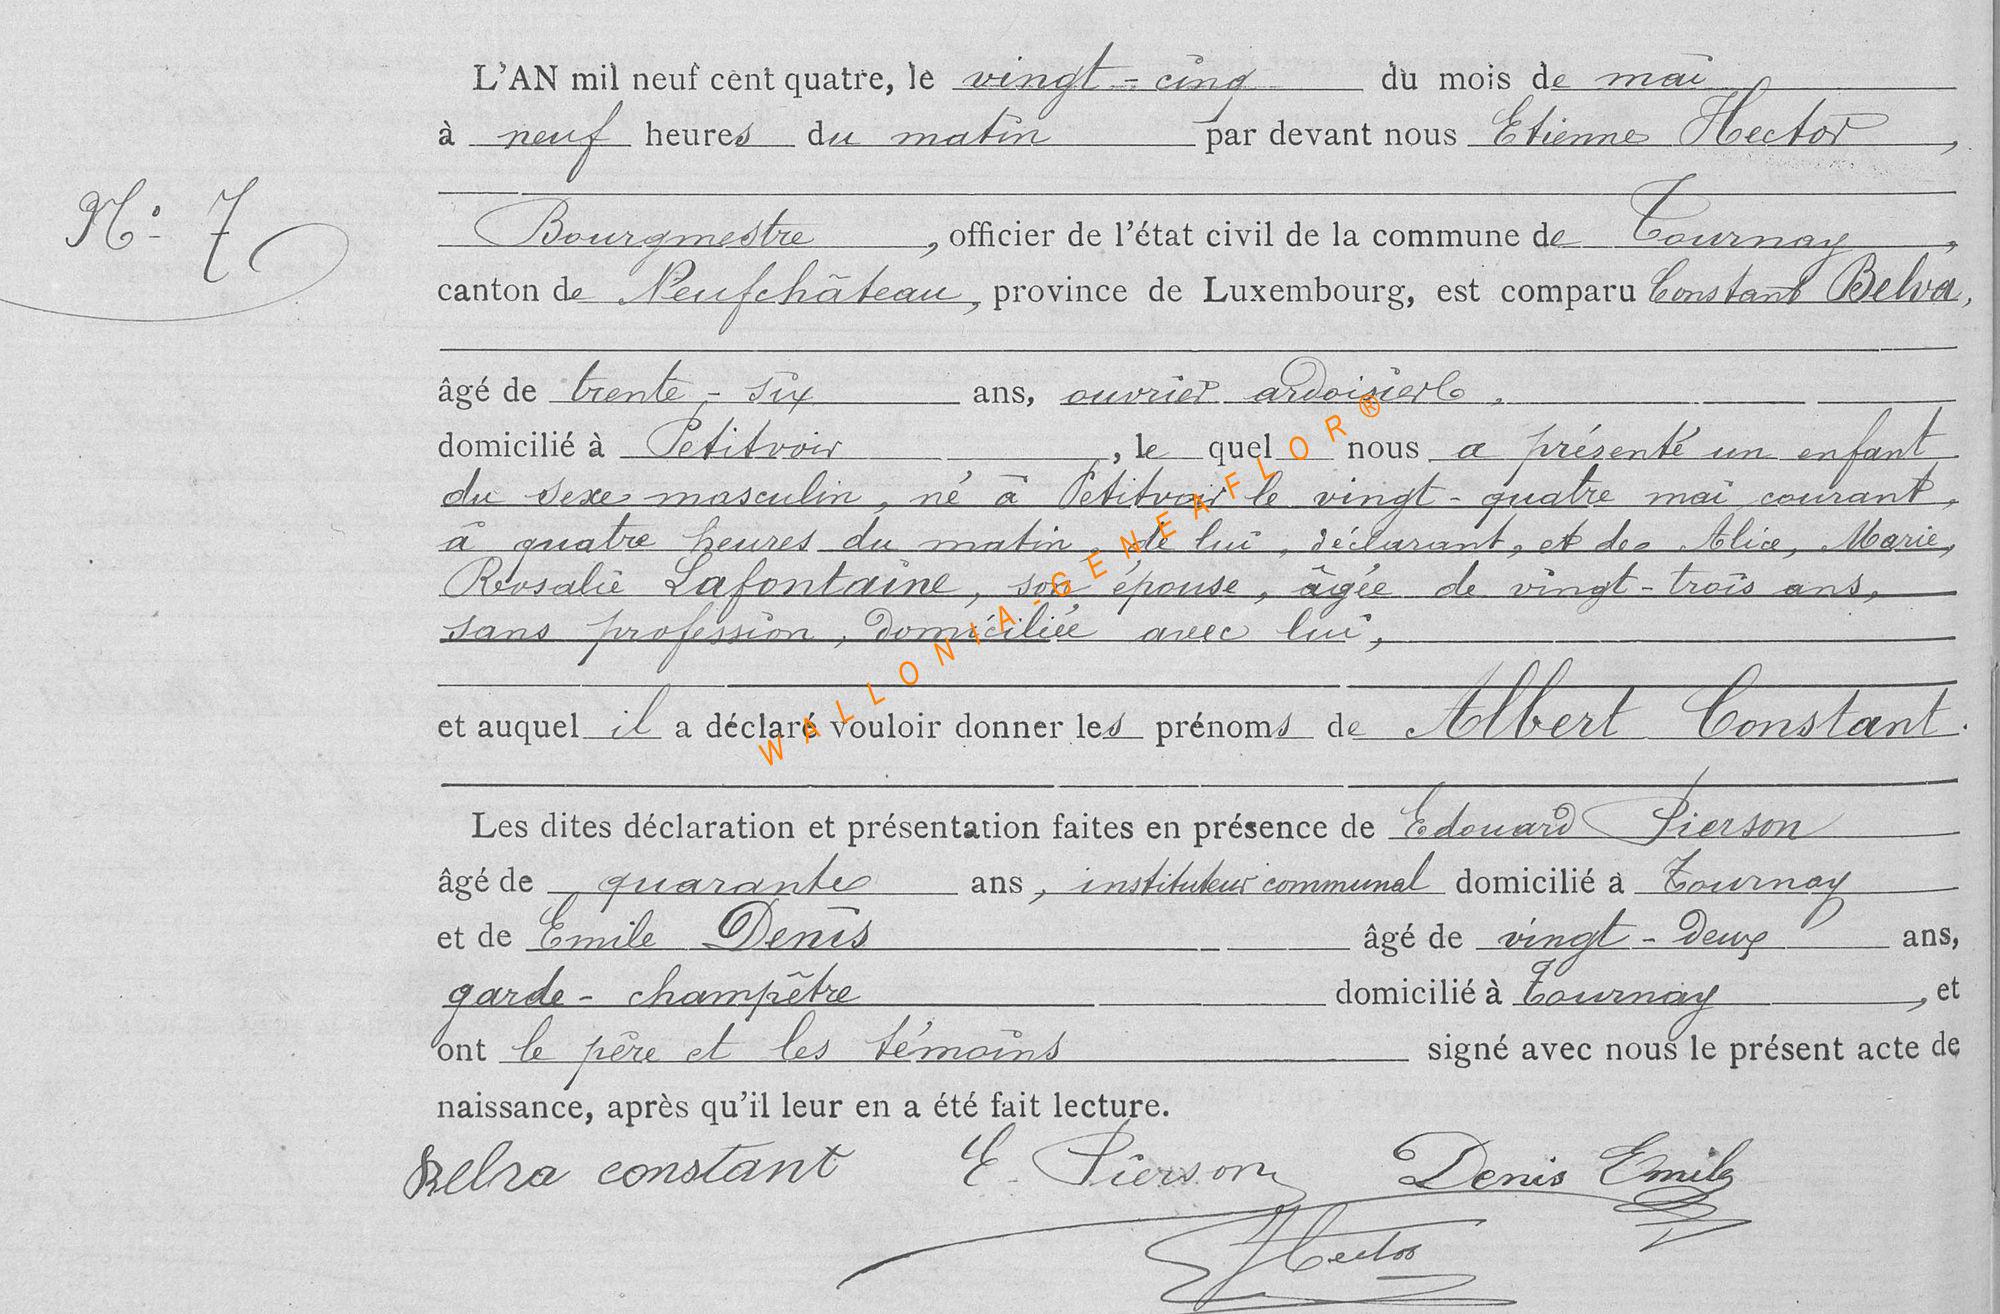 L'AN mil neuf cent quatre, le vingt-cinq du mois de mai
à neuf heures du matin par devant nous Etienne Hector,
N° 7
Bourgmestre, officier de l'état civil de la commune de Tournay,
canton de Neufchâteau, province de Luxembourg, est comparu Constant Belva,
âgé de trente-six ans, ouvrier ardoisier.
domicilié à Petitvoir, le quel nous a présenté un enfant
du sexe masculin, né à Petitvoir le vingt-quatre mai courant,
à quatre heures du matin, de lui, déclarant, et de Alice, Marie,
Rosalie Lafontaine, son épouse, âgée de vingt-trois ans,
sans profession, domiciliée avec lui,
et auquel il a déclaré vouloir donner les prénoms de Albert Constant.
Les dites déclaration et présentation faites en présence de Edouard Pierson
âgé de quarante ans, instituteur communal domicilié à Tournay
et de Emile Denis âgé de vingt-deux ans,
garde-champêtre domicilié à Tournay, et
ont le père et les témoins signé avec nous le présent acte de
naissance, après qu'il leur en a été fait lecture.
Belva constant E. Pierson Denis Emile
Hector
WALLONIA-GENEAFLOR®